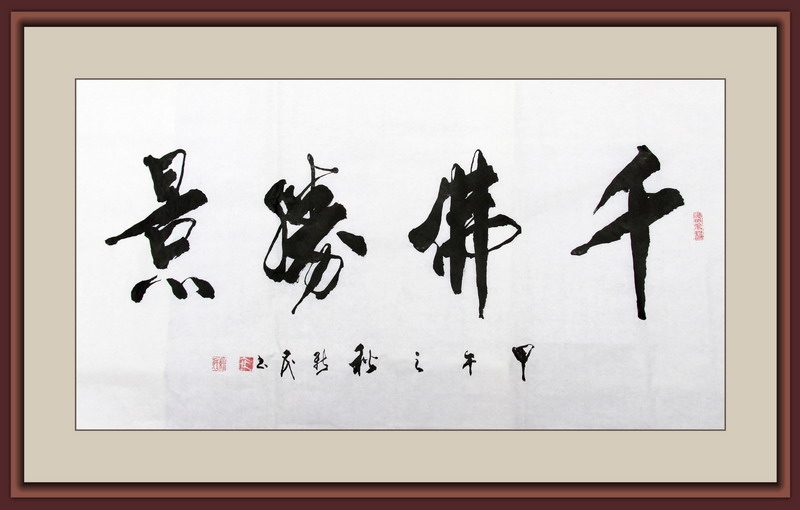 千佛勝景
甲午之秋新民书